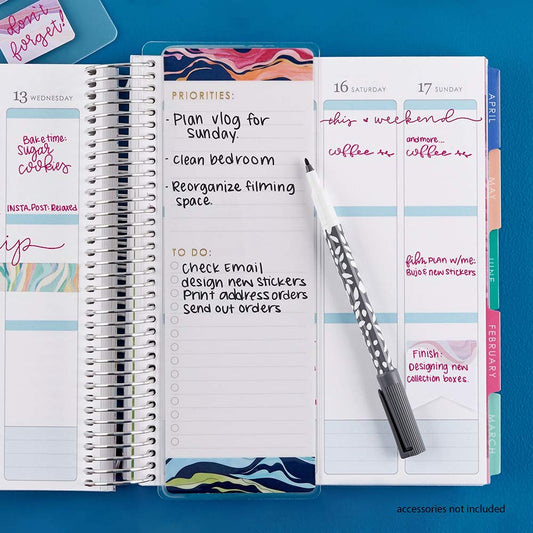 don't
forget!
13 WEDNESDAY
Bake time:
Sugar
cookies
INSTA POST: Relaxed
PRIORITIES:
- Plan vlog for
Sunday
- Clean bedroom
- Reorganize filming
space.
TO DO:
Check Email
design new stickers
Print address orders
Send out orders
16 SATURDAY
17 SUNDAY
this ♥ weekend
coffee
and more...
coffee
film PLAN W/ME:
BUJO & new stickers
Finish:
Designing new
Collection boxes.
APRIL
MAY
JUNE
FEBRUARY
MARCH
accessories not included